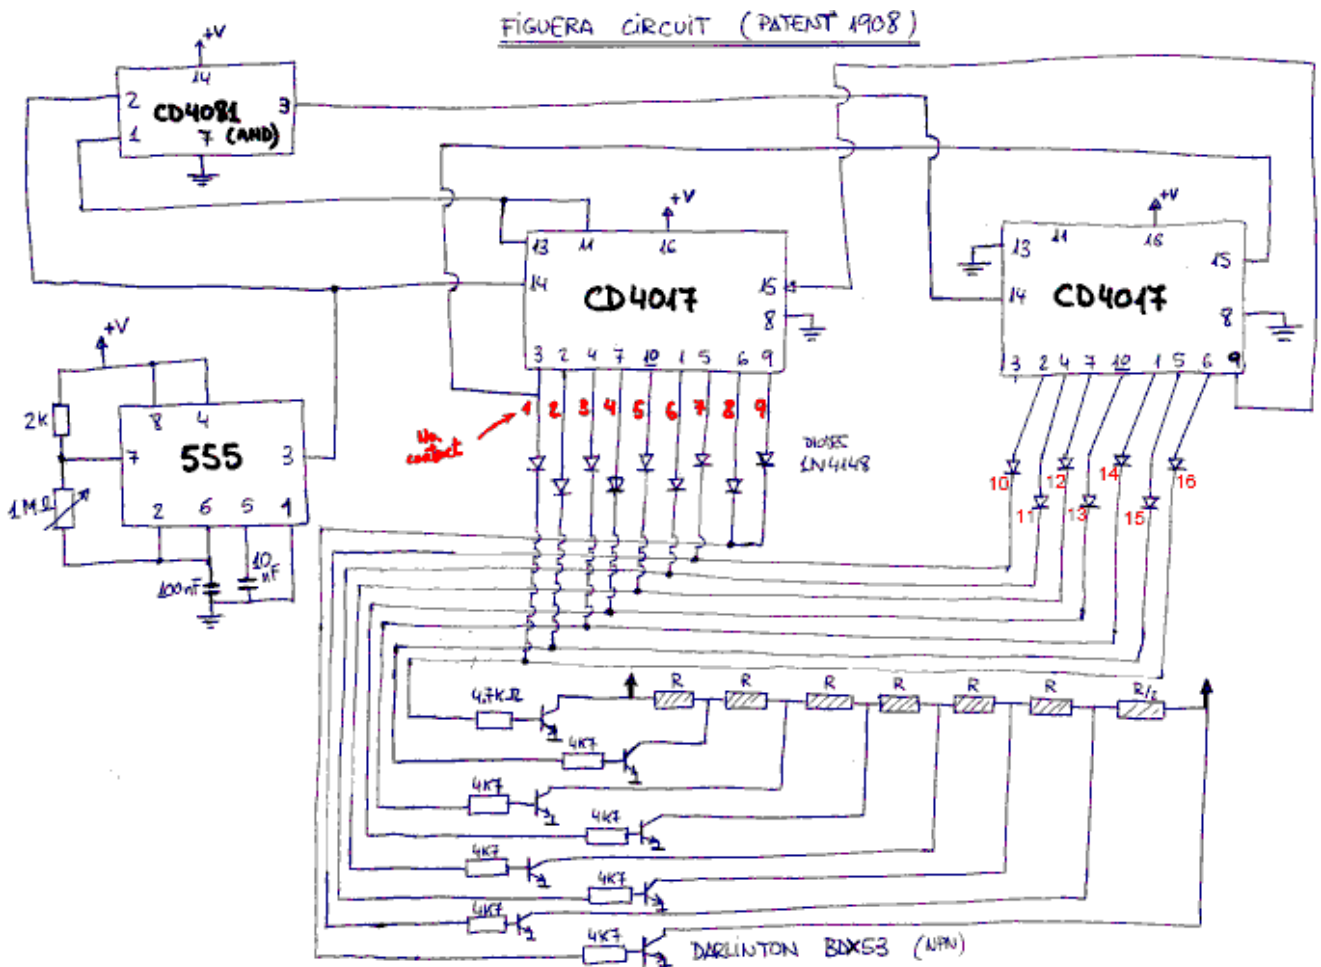 FIGUERA CIRCUIT (PATENT 1908)
+V
14
2 CD4081 3
1 7 (AND)
+V
13 11 16
14 CD4017 15
8
3 2 4 7 10 1 5 6 9
+V
13 11 16
15
14 CD4017
8
3 2 4 7 10 1 5 6 9
+V
2K
8 4
7 555 3
1MΩ
2 6 5 1
100nF 10 nF
1 2 3 4 5 6 7 8 9
No contact
DIODES
1N4148
10 11 12 13 14 15 16
R R R R R R R/2
4.7KΩ
4K7
4K7
4K7
4K7
4K7
4K7
4K7
DARLINTON BDX53 (NPN)